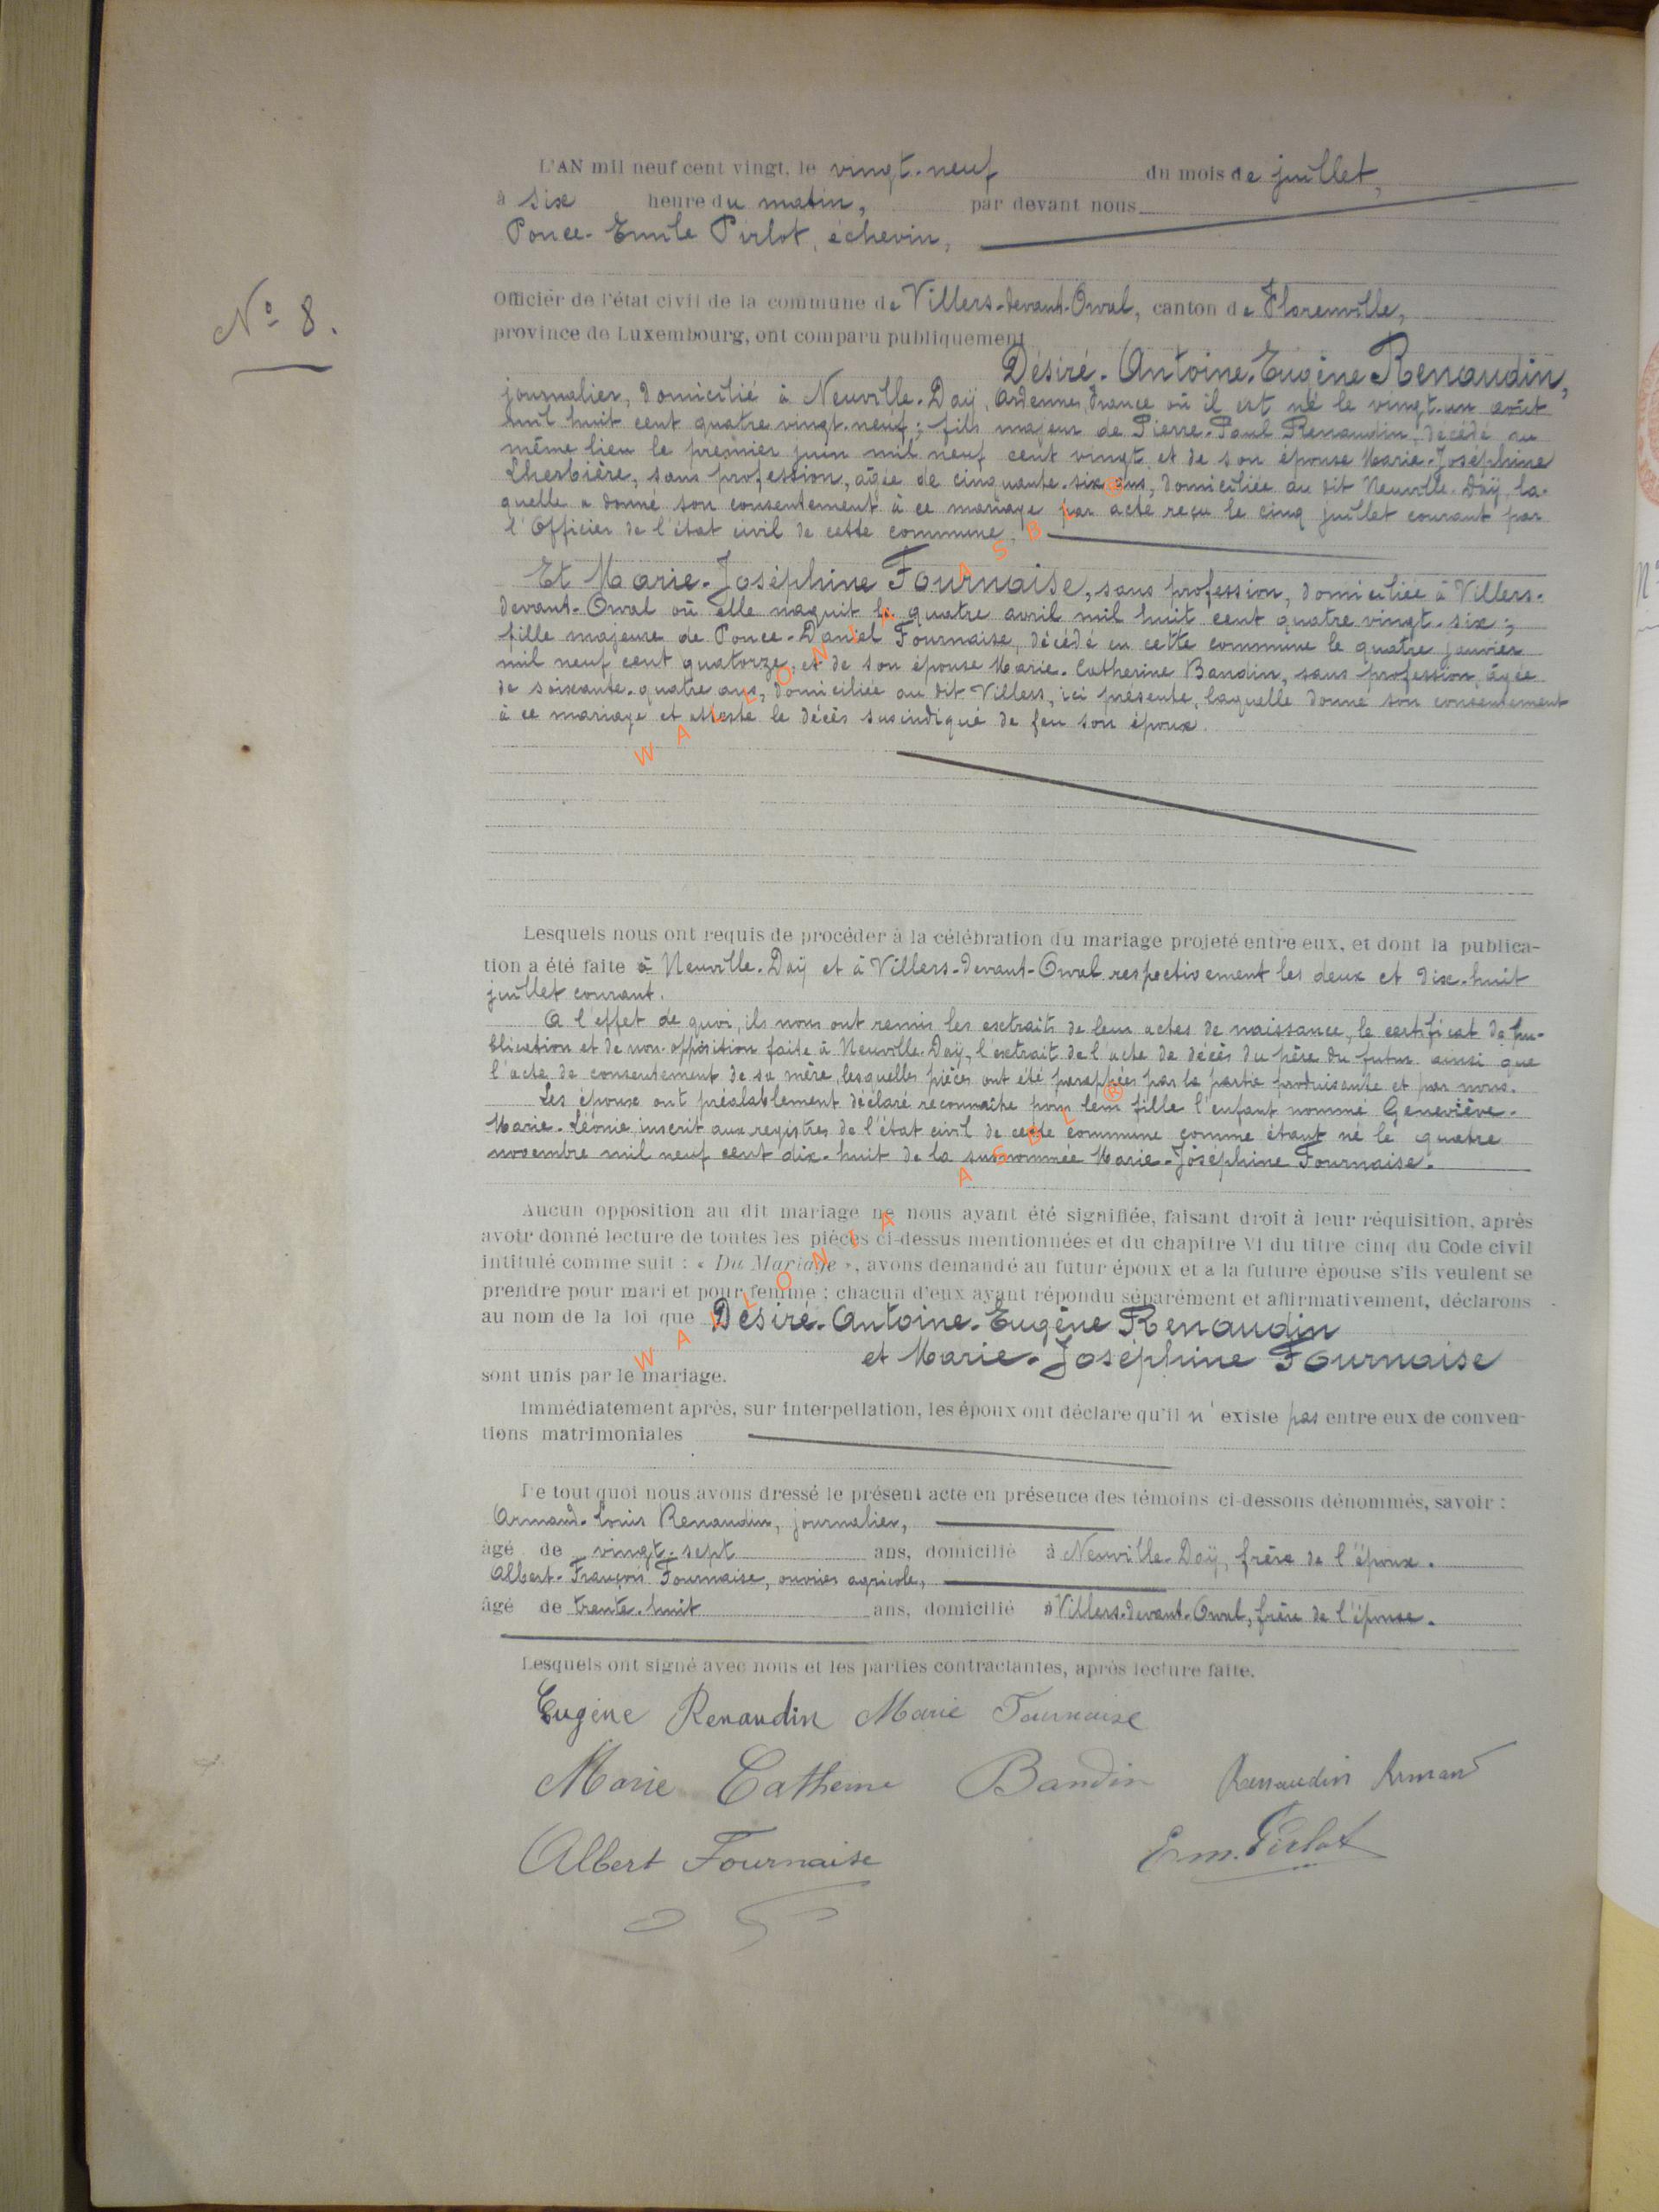 L'AN mil neuf cent vingt, le vingt-neuf du mois de juillet,
à six heure du matin, par devant nous
Ponce-Emile Pirlot, échevin,
N° 8.
Officier de l'état civil de la commune de Villers-devant-Orval, canton de Florenville,
province de Luxembourg, ont comparu publiquement
Désiré-Antoine-Eugène Renaudin,
journalier, domicilié à Neuville-Daÿ, Ardennes, France où il est né le vingt-un août
mil huit cent quatre vingt-neuf; fils majeur de Pierre-Paul Renaudin, décédé au
même lieu le premier juin mil neuf cent vingt et de son épouse Marie-Joséphine
Lherbière, sans profession, âgée de cinquante-six ans, domiciliée au dit Neuville-Daÿ, la-
quelle a donné son consentement à ce mariage par acte reçu le cinq juillet courant par
l'Officier de l'état civil de cette commune.
Et Marie-Joséphine Fournaise, sans profession, domiciliée à Villers-
devant-Orval où elle naquit le quatre avril mil huit cent quatre vingt-six;
fille majeure de Ponce-Daniel Fournaise, décédé en cette commune le quatre janvier
mil neuf cent quatorze, et de son épouse Marie-Catherine Bandin, sans profession, âgée
de soixante-quatre ans, domiciliée au dit Villers, ici présente, laquelle donne son consentement
à ce mariage et atteste le décès susindiqué de feu son époux.
WALLONIA ASBL ®
Lesquels nous ont requis de procéder à la célébration du mariage projeté entre eux, et dont la publica-
tion a été faite à Neuville-Daÿ et à Villers-devant-Orval respectivement les deux et dix-huit
juillet courant.
A l'effet de quoi, ils nous ont remis les extraits de leur actes de naissance, le certificat de pu-
blication et de non-opposition faite à Neuville-Daÿ, l'extrait de l'acte de décès du père du futur ainsi que
l'acte de consentement de sa mère, lesquelles pièces ont été paraphées par la partie produisante et par nous.
Les époux ont préalablement déclaré reconnaître pour leur fille l'enfant nommé Geneviève-
Marie-Léonie, inscrit aux registres de l'état civil de cette commune comme étant né le quatre
novembre mil neuf cent dix-huit de la surnommée Marie-Joséphine Fournaise.
Aucun opposition au dit mariage ne nous ayant été signifiée, faisant droit à leur réquisition, après
avoir donné lecture de toutes les pièces ci-dessus mentionnées et du chapitre VI du titre cinq du Code civil
intitulé comme suit : « Du Mariage », avons demandé au futur époux et a la future épouse s'ils veulent se
prendre pour mari et pour femme ; chacun d'eux ayant répondu séparément et affirmativement, déclarons
au nom de la loi que Désiré-Antoine-Eugène Renaudin
et Marie-Joséphine Fournaise
sont unis par le mariage.
WALLONIA ASBL ®
Immédiatement après, sur interpellation, les époux ont déclaré qu'il n'existe pas entre eux de conven-
tions matrimoniales
De tout quoi nous avons dressé le présent acte en présence des témoins ci-dessons dénommés, savoir :
Armand-Louis Renaudin, journalier,
âgé de vingt-sept ans, domicilié à Neuville-Daÿ, frère de l'époux.
Albert-François Fournaise, ouvrier agricole,
âgé de trente-huit ans, domicilié à Villers-devant-Orval, frère de l'épouse.
Lesquels ont signé avec nous et les parties contractantes, après lecture faite.
Eugène Renaudin Marie Fournaise
Marie Catherine Bandin Renaudin Armand
Albert Fournaise Em. Pirlot